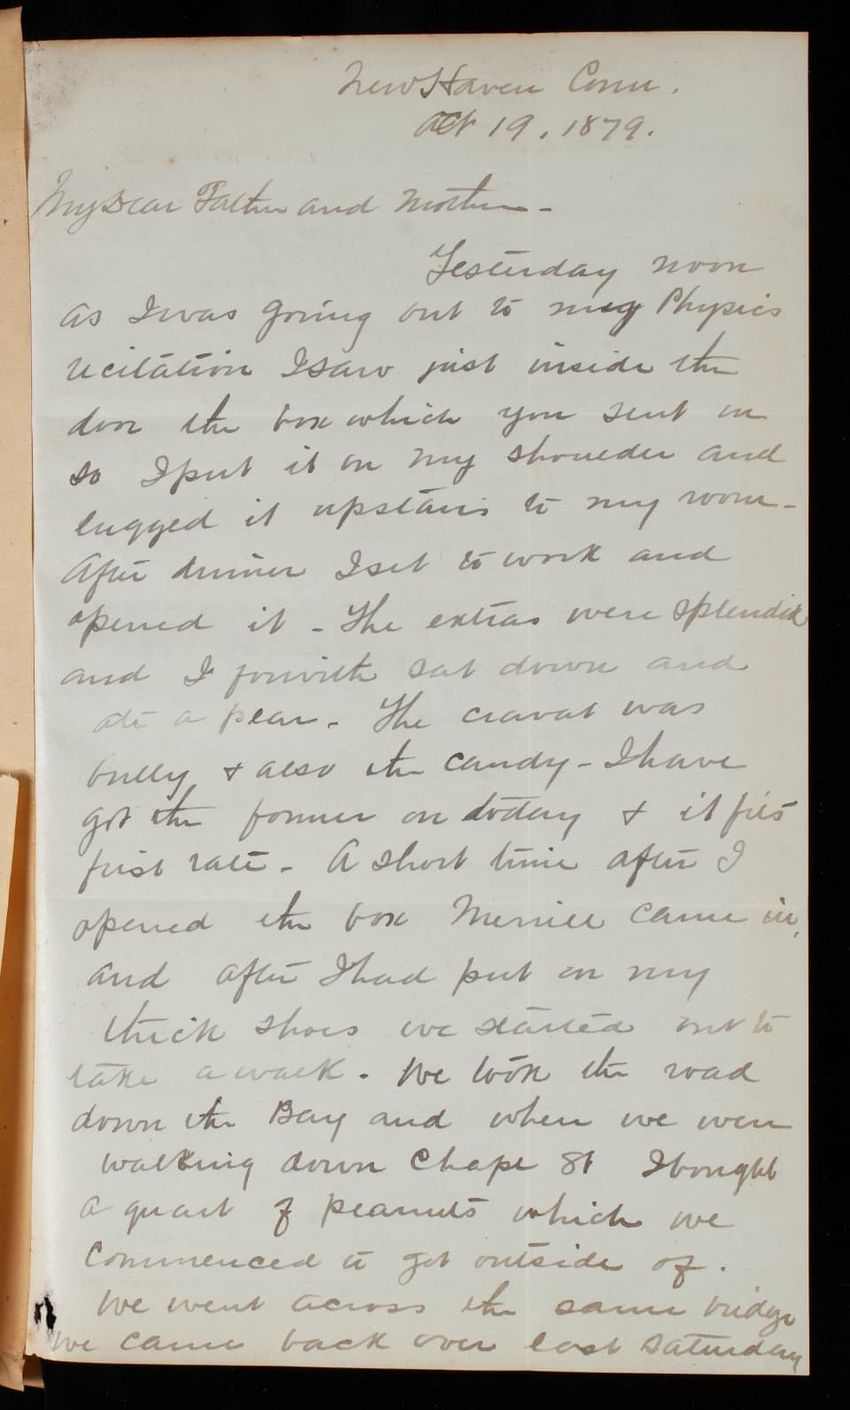 New Haven Conn.
Oct 19, 1879.
My Dear Father and Mother -
Yesterday noon
as I was going out to my Physics
recitation I saw just inside the
door the box which you sent on
so I put it on my shoulder and
lugged it upstairs to my room -
After dinner I set to work and
opened it - The extras were splendid
and I forwith sat down and
ate a pear. The cravat was
bully & also the candy - I have
got the former on today & it fits
first rate - A short time after I
opened the box Merrill came in,
and after I had put on my
thick shoes we started out to
take a walk. We took the road
down the Bay and when we were
walking down Chapel St I bought
a quart of peanuts which we
commenced to get outside of.
We went across the same bridge
we came back over last Saturday